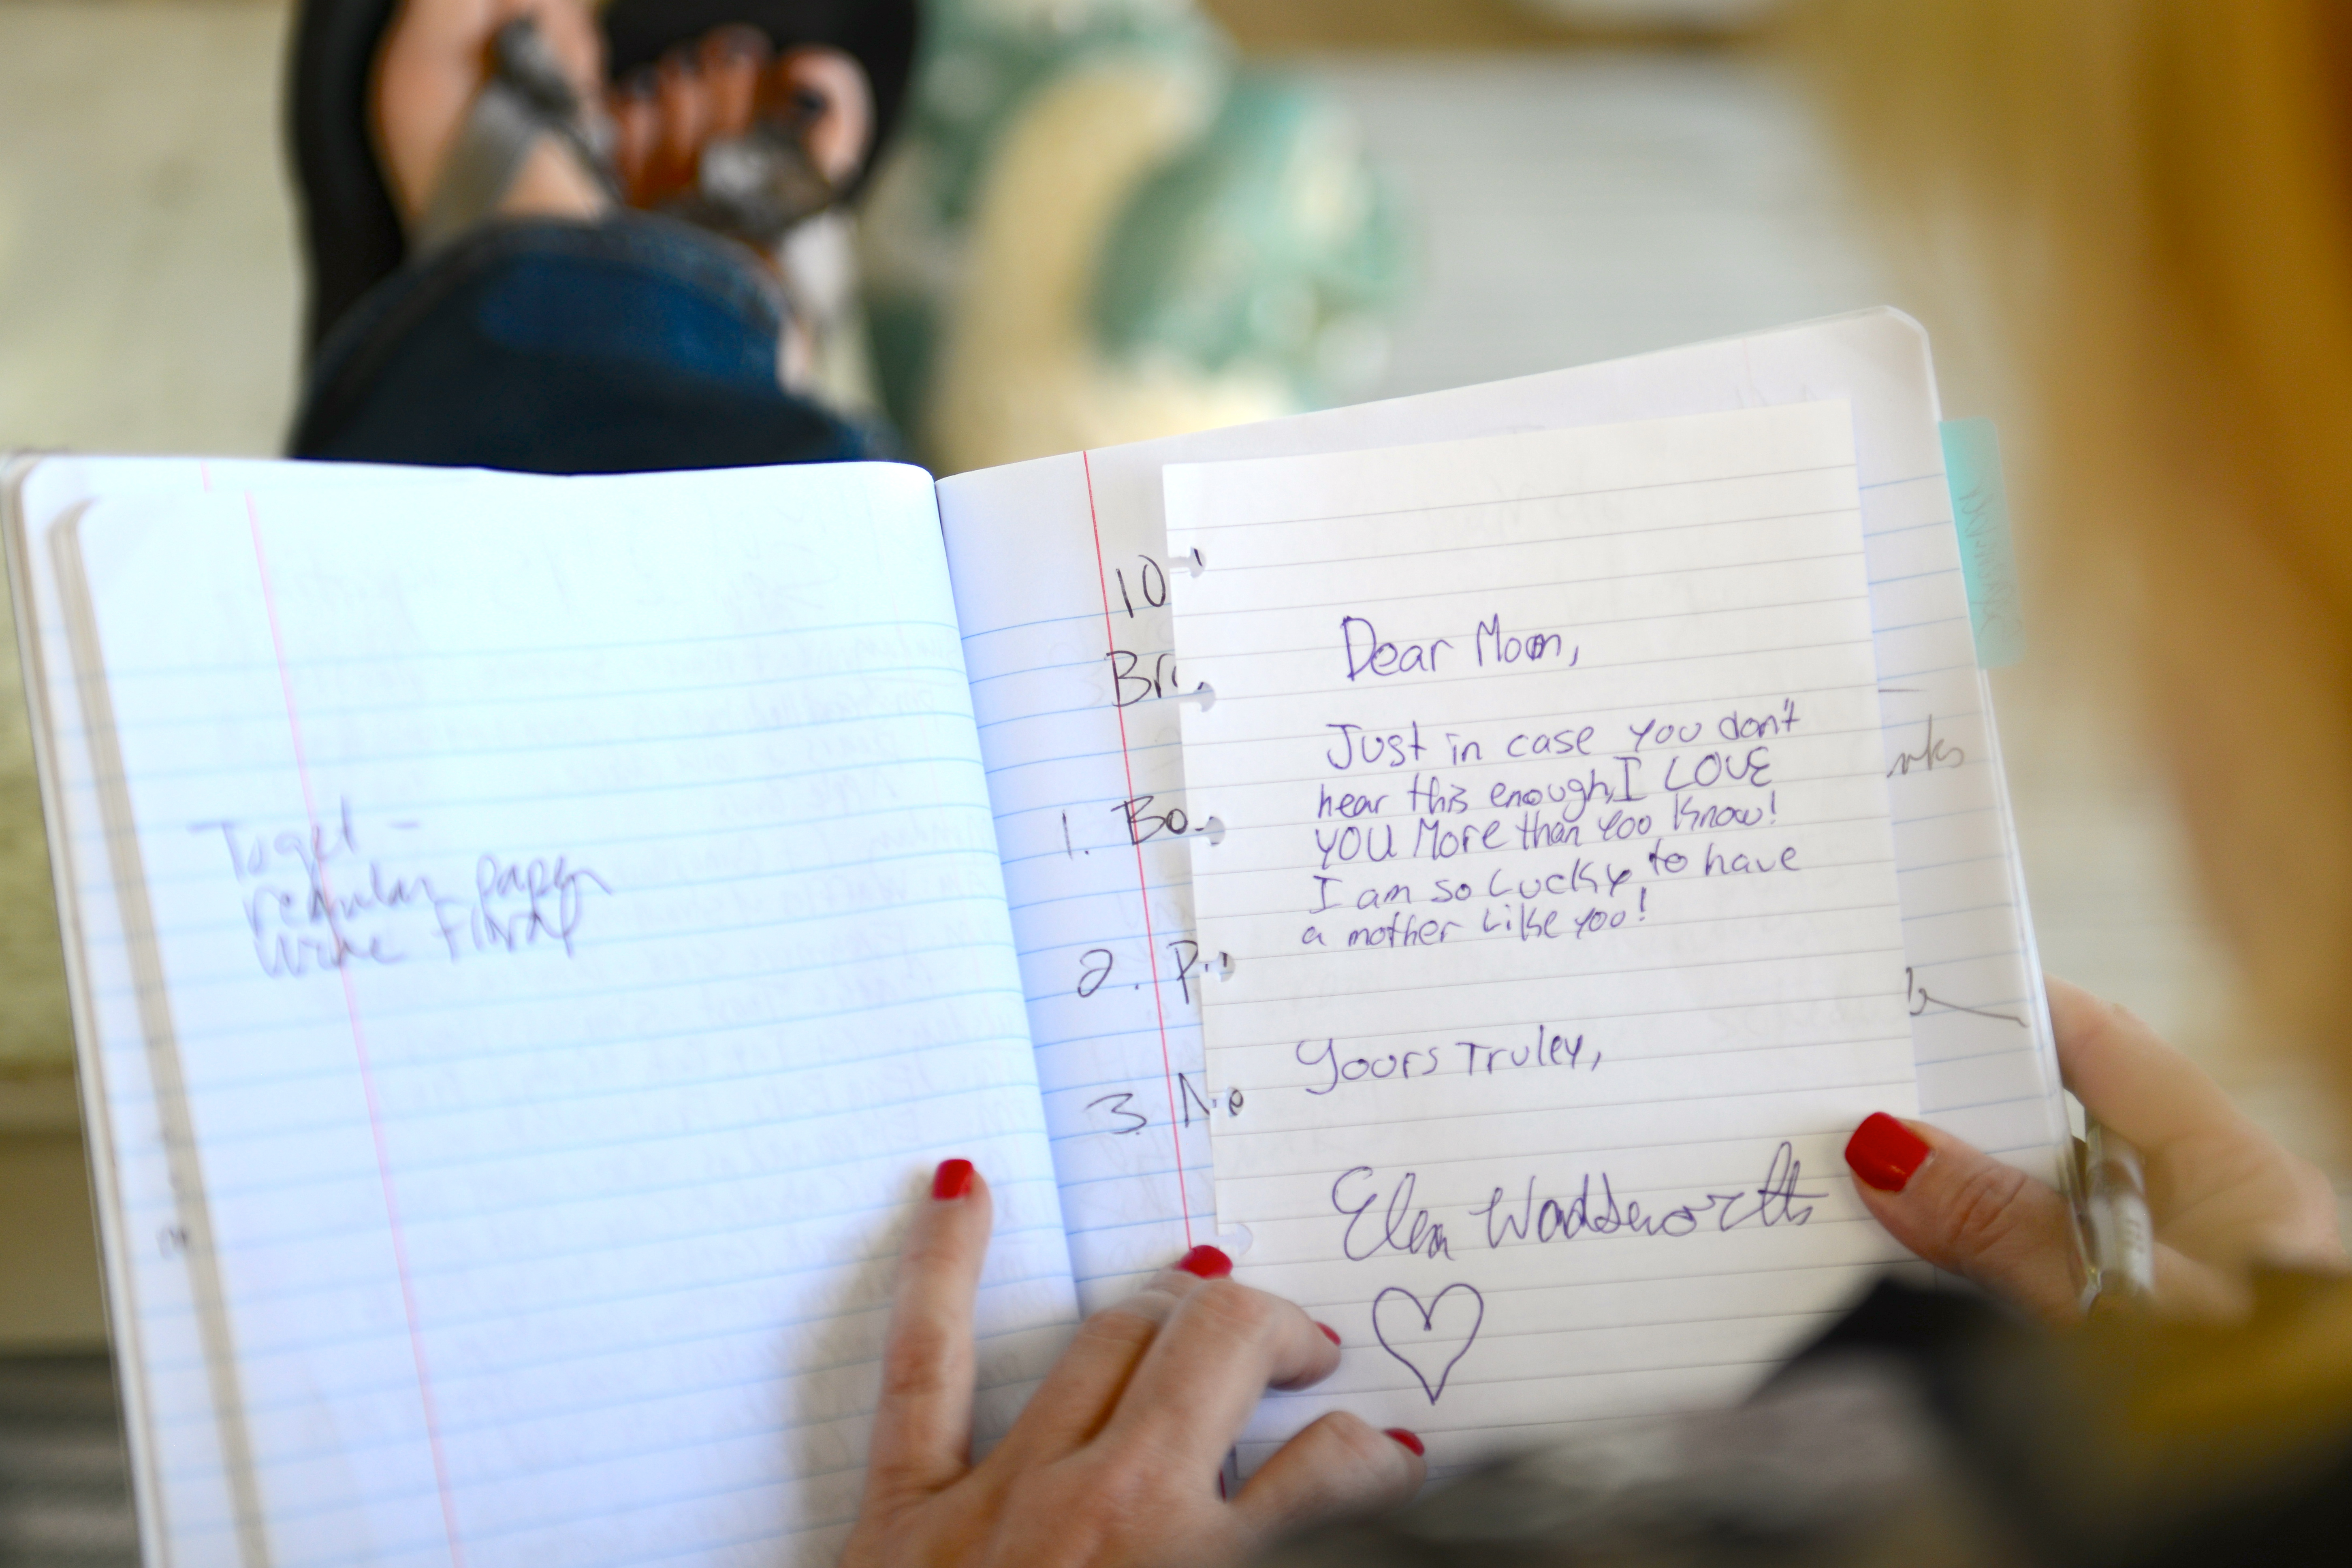 To get -
regular paper
wire floral
10
Br
1. Bo
2. P
3. Ne
Dear Mom,
Just in case you don't
hear this enough, I LOVE
YOU More than YOO Know!
I am so Lucky to have
a mother Like you!
Yours Truley,
Elen Waddsworth